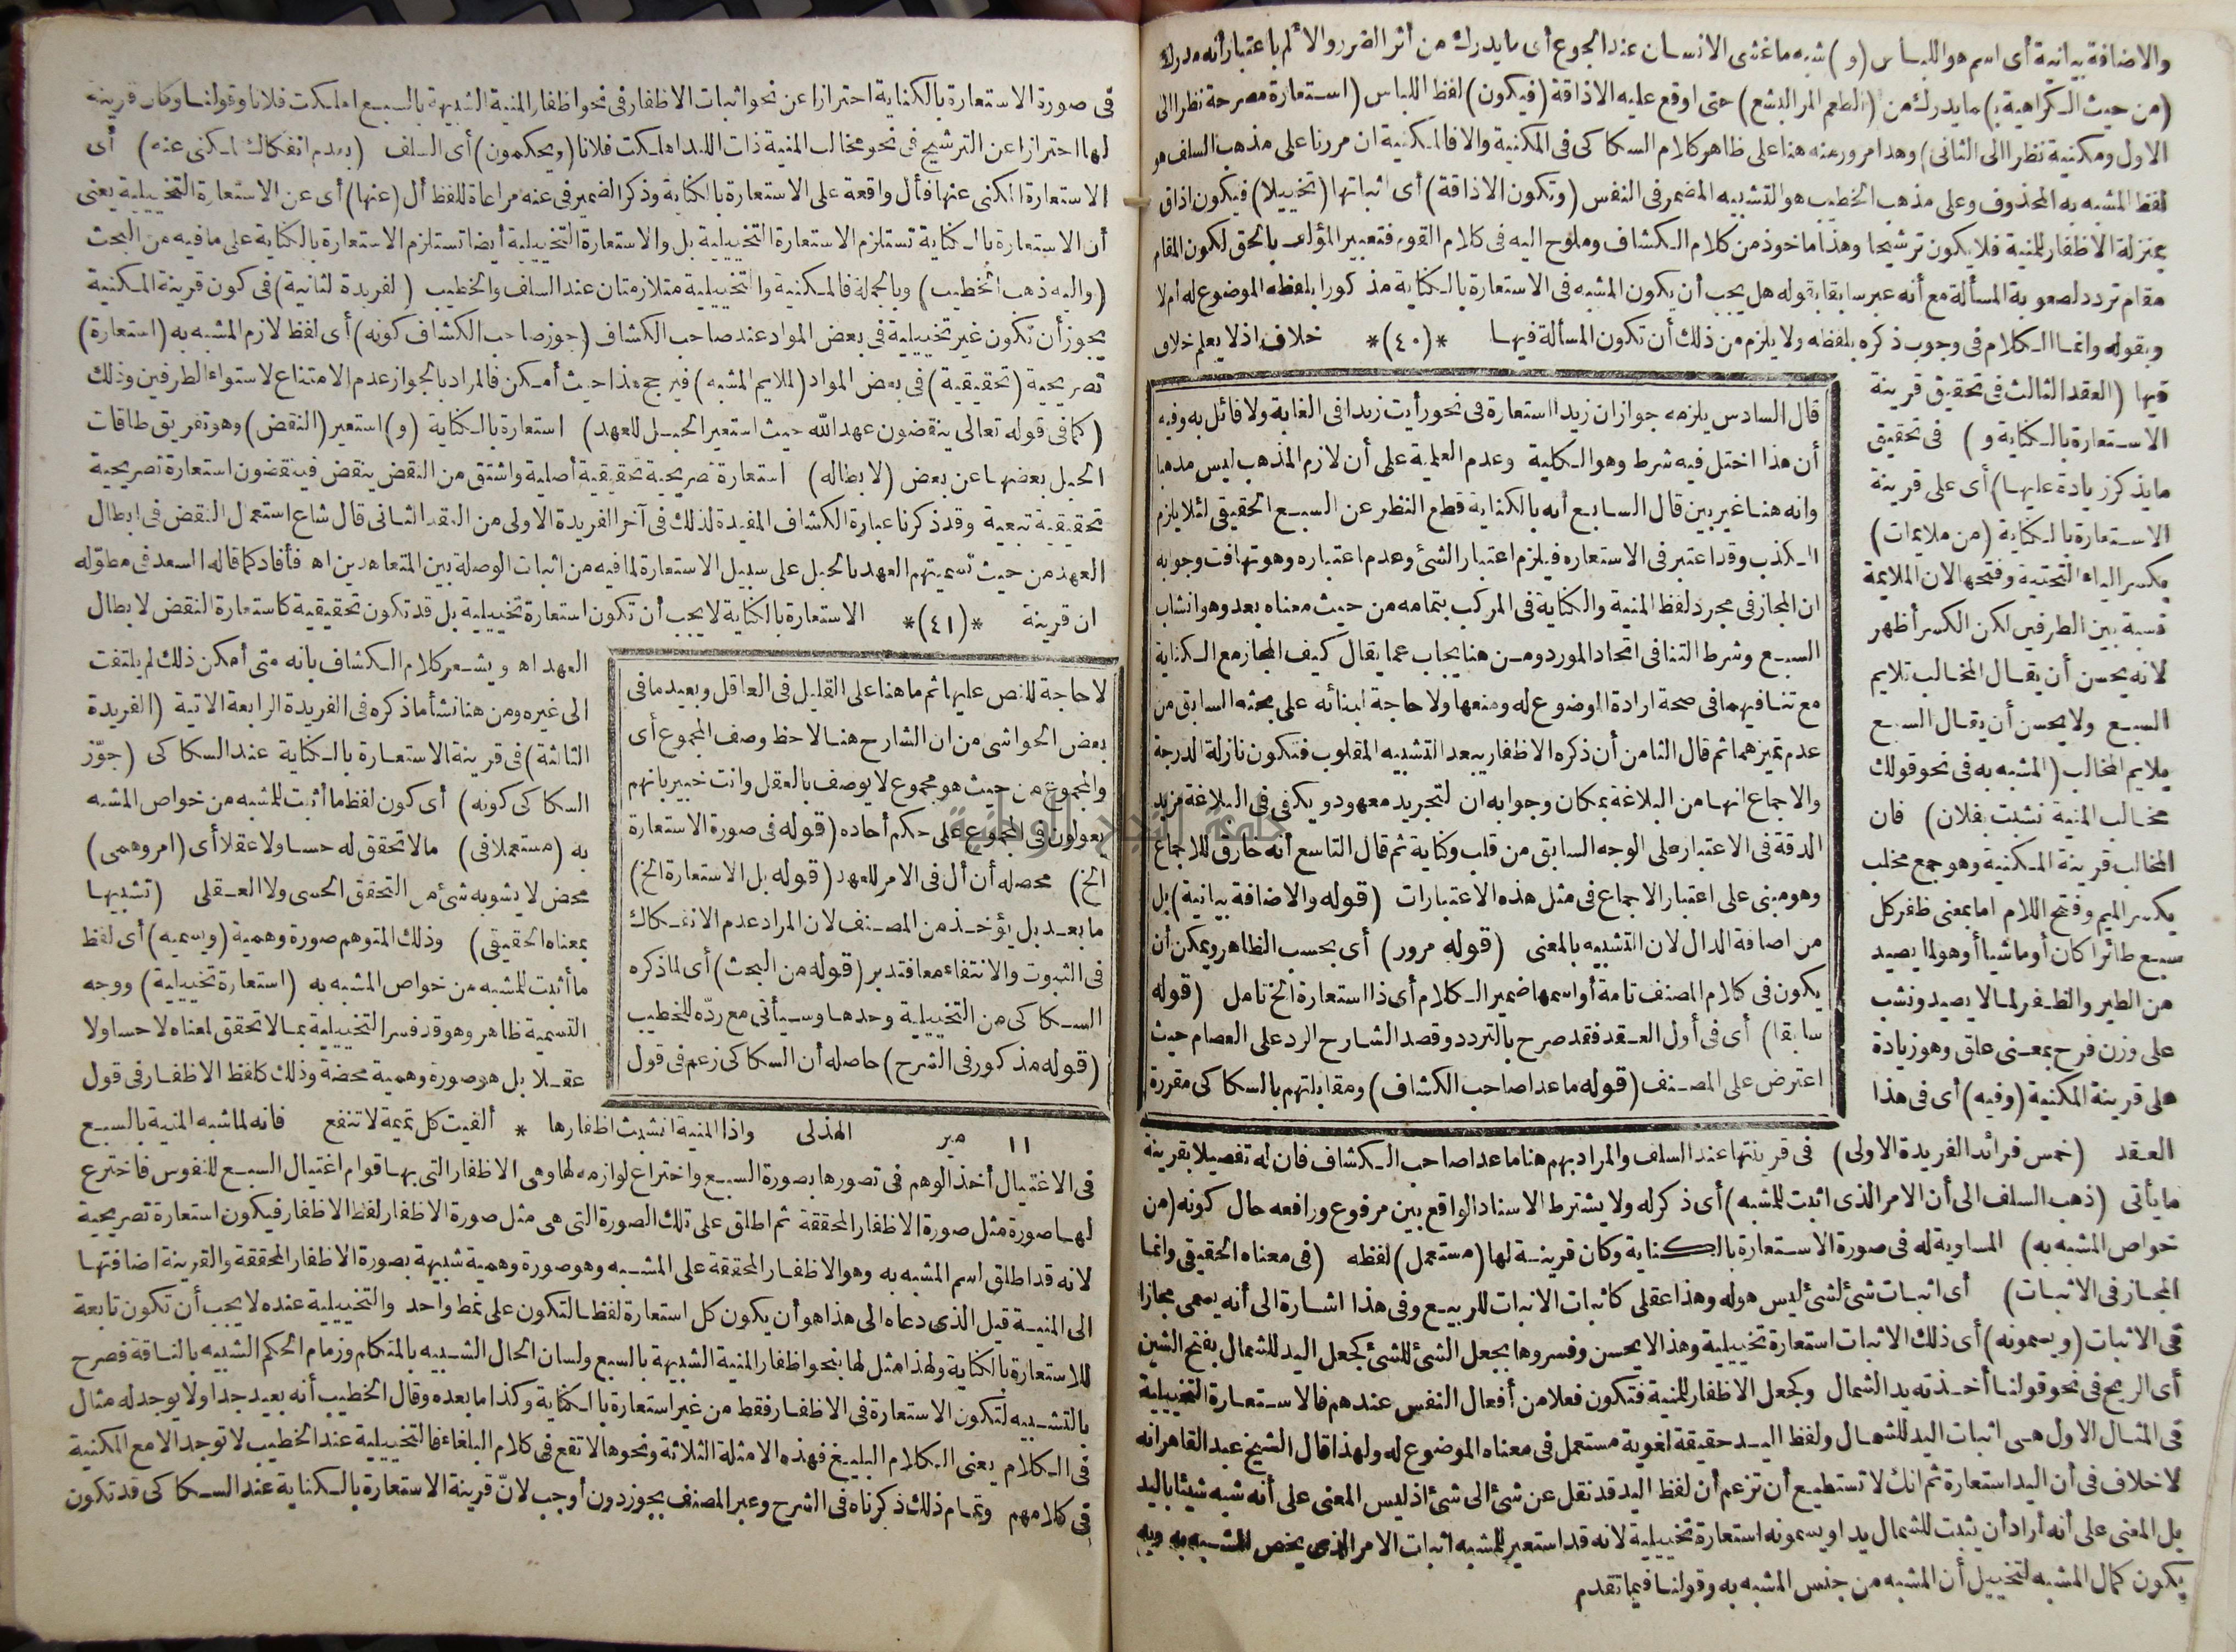 والاضافة بيانية أى اسم هو اللباس (و) شبه ما غشى الانسان عند الجوع أى ما يدرك من أثر الضرر والالم باعتبار أنه مدرك
(من حيث الكراهية) ما يدرك من (الطعم المر البشع) حتى اوقع عليه الاذاقة (فيكون) لفظ اللباس (استعارة مصرحة نظرا الى
الاول ومكنية نظرا الى الثانى) وهذا مرور منه هنا على ظاهر كلام السكاكى فى المكنية والا فالمكنية ان مررنا على مذهب السلف هو
لفظ المشبه به المحذوف وعلى مذهب الخطيب هو التشبيه المضمر فى النفس (وتكون الاذاقة) أى اثباتها (تخييلا) فيكون اذاق
بمنزلة الاظفار للمنية فلا يكون ترشيحا وهذا ماخوذ من كلام الكشاف وملوح اليه فى كلام القوم فتعبير المؤلف بالحق لكون المقام
مقام تردد لصعوبة المسألة مع أنه عبر سابقا بقوله هل يجب أن يكون المشبه فى الاستعارة بالكناية مذكورا بلفظه الموضوع له ام لا
وبقوله وانما الكلام فى وجوب ذكره بلفظه ولا يلزم من ذلك أن تكون المسألة فيها *(٤٠)* خلاف اذ لا يعلم خلاف
فيها (العقد الثالث فى تحقيق قرينة
الاستعارة بالكناية و) فى تحقيق
ما يذكر زيادة عليها) أى على قرينة
الاستعارة بالكناية (من ملايمات)
بكسر الياء التحتية وفتحها لان الملايمة
نسبة بين الطرفين لكن الكسر أظهر
لانه يحسن أن يقال المخالب تلايم
السبع ولا يحسن أن يقال السبع
يلايم المخالب (المشبه به فى نحو قولك
مخالب المنية نشبت بفلان) فان
المخالب قرينة المكنية وهو جمع مخلب
بكسر الميم وفتح اللام اما بمعنى ظفر كل
سبع طائرا كان أو ماشيا أو هو لما يصيد
من الطير والظفر لما لا يصيد ونشب
على وزن فرح بمعنى علق وهو زيادة
على قرينة المكنية (وفيه) أى فى هذا
قال السادس يلزمه جواز ان زيدا استعارة فى نحو رأيت زيدا فى الغابة ولا قائل به وفيه
أن هذا اختل فيه شرط وهو الكلية وعدم العلمية على أن لازم المذهب ليس مذهبا
وانه هنا غير بين قال السابع أنه بالكناية قطع النظر عن السبع الحقيقى لئلا يلزم
الكذب وقد اعتبر فى الاستعاره فيلزم اعتبار الشئ وعدم اعتباره وهو تهافت وجوابه
ان المجاز فى مجرد لفظ المنية والكناية فى المركب بتمامه من حيث معناه بعد وهو انشاب
السبع وشرط التنافى اتحاد المورد ومن هنا يجاب عما يقال كيف المجاز مع الكناية
مع تنافيهما فى صحة ارادة الموضوع له ومنعها ولا حاجة لبنائه على بحثه السابق من
عدم تميزهما ثم قال الثامن أن ذكره الاظفار يبعد التشبيه المقلوب فتكون نازلة الدرجة
والاجماع انها من البلاغة بمكان وجوابه ان لتجريد معهود ويكفى فى البلاغة مزيد
الدقة فى الاعتبار على الوجه السابق من قلب وكناية ثم قال التاسع أنه خارق للاجماع
وهو مبنى على اعتبار الاجماع فى مثل هذه الاعتبارات (قوله والاضافة بيانية) بل
من اضافة الدال لان التشبيه بالمعنى (قوله مرور) أى بحسب الظاهر ويمكن أن
يكون فى كلام المصنف تامة أو اسمها ضمير الكلام أى ذا استعارة الخ تامل (قوله
سابقا) أى فى أول العقد فقد صرح بالتردد وقصد الشارح الرد على العصام حيث
اعترض على المصنف (قوله ما عدا صاحب الكشاف) ومقابلتهم بالسكاكى مقررة
العقد (خمس فرائد الفريدة الاولى) فى قرينتها عند السلف والمراد بهم هنا ما عدا صاحب الكشاف فان له تفصيلا بقرينة
ما يأتى (ذهب السلف الى أن الامر الذى اثبت للمشبه) أى ذكر له ولا يشترط الاسناد الواقع بين مرفوع ورافعه حال كونه (من
خواص المشبه به) المساوية له فى صورة الاستعارة بالكناية وكان قرينة لها (مستعمل) لفظه (فى معناه الحقيقى وانما
المجاز فى الاثبات) أى اثبات شئ لشئ ليس هو له وهذا عقلى كاثبات الانبات للربيع وفى هذا اشارة الى أنه يسمى مجازا
فى الاثبات (ويسمونه) أى ذلك الاثبات استعارة تخييلية وهذا لا يحسن وفسروها بجعل الشئ للشئ كجعل اليد للشمال بفتح الشين
أى الريح فى نحو قولنا أخذته يد الشمال وكجعل الاظفار للمنية فتكون فعلا من أفعال النفس عندهم فالاستعارة التخييلية
فى المثال الاول هى اثبات اليد للشمال ولفظ اليد حقيقة لغوية مستعمل فى معناه الموضوع له ولهذا قال الشيخ عبد القاهر انه
لا خلاف فى أن اليد استعارة ثم انك لا تستطيع أن تزعم أن لفظ اليد قد نقل عن شئ الى شئ اذ ليس المعنى على أنه شبه شيئا باليد
بل المعنى على أنه أراد أن يثبت للشمال يدا ويسمونه استعارة تخييلية لانه قد استعير للمشبه اثبات الامر الذى يخص المشبه به وبه
يكون كمال المشبه لتخييل أن المشبه من جنس المشبه به وقولنا فيما تقدم
فى صورة الاستعارة بالكناية احترازا عن نحو اثبات الاظفار فى نحو اظفار المنية الشبيهة بالسبع اهلكت فلانا وقولنا وكان قرينة
لها احترازا عن الترشيح فى نحو مخالب المنية ذات اللبد اهلكت فلانا (ويحكمون) أى السلف (بعدم انفكاك المكنى عنه) أى
الاستعارة المكنى عنها فأل واقعة على الاستعارة بالكناية وذكر الضمير فى عنه مراعاة للفظ أل (عنها) أى عن الاستعارة التخييلية يعنى
أن الاستعارة بالكناية تستلزم الاستعارة التخييلية بل والاستعارة التخييلية أيضا تستلزم الاستعارة بالكناية على ما فيه من البحث
(واليه ذهب الخطيب) وبالجملة فالمكنية والتخييلية متلازمتان عند السلف والخطيب (الفريدة الثانية) فى كون قرينة المكنية
يجوز أن تكون غير تخييلية فى بعض المواد عند صاحب الكشاف (جوز صاحب الكشاف كونه) أى لفظ لازم المشبه به (استعارة)
تصريحية (تحقيقية) فى بعض المواد (لملايم المشبه) فيرجح هذا حيث أمكن فالمراد بالجواز عدم الامتناع لاستواء الطرفين وذلك
(كما فى قوله تعالى ينقضون عهد الله حيث استعير الحبل للعهد) استعارة بالكناية (و) استعير (النقض) وهو تفريق طاقات
الحبل بعضها عن بعض (لابطاله) استعارة تصريحية تحقيقية أصلية واشتق من النقض ينقض فينقضون استعارة تصريحية
تحقيقية تبعية وقد ذكرنا عبارة الكشاف المفيدة لذلك فى آخر الفريدة الاولى من العقد الثانى قال شاع استعمل النقض فى ابطال
العهد من حيث تسميتهم العهد بالحبل على سبيل الاستعارة لما فيه من اثبات الوصلة بين المتعاهدين اه فأفاد كما قاله السعد فى مطوّله
ان قرينة *(٤١)* الاستعارة بالكناية لا يجب أن تكون استعارة تخييلية بل قد تكون تحقيقية كاستعارة النقض لابطال
لا حاجة للنص عليها ثم ما هنا على القليل فى العاقل وبعيد ما فى
بعض الحواشى من ان الشارح هنا لاحظ وصف المجموع أى
والمجموع من حيث هو مجموع لا يوصف بالعقل وانت خبير بانهم
يعولون فى المجموع على حكم أحاده (قوله فى صورة الاستعارة
الخ) محصله أن أل فى الامر للعهد (قوله بل الاستعارة الخ)
ما بعد بل يؤخذ من المصنف لان المراد عدم الانفكاك
فى الثبوت والانتفاء معا فتدبر (قوله من البحث) أى لما ذكره
السكاكى من التخييلية وحدها وسيأتى مع ردّه للخطيب
(قوله مذكور فى الشرح) حاصله أن السكاكى زعم فى قول
العهد اه ويشعر كلام الكشاف بانه متى أمكن ذلك لم يلتفت
الى غيره ومن هنا نشأ ما ذكره فى الفريدة الرابعة الاتية (الفريدة
الثالثة) فى قرينة الاستعارة بالكناية عند السكاكى (جوّز
السكاكى كونه) أى كون لفظ ما أثبت للمشبه من خواص المشبه
به (مستعملا فى) ما لا تحقق له حسا ولا عقلا أى (امر وهمى)
محض لا يشوبه شئ من التحقق الحسى ولا العقلى (تشبيها
بمعناه الحقيقى) وذلك المتوهم صورة وهمية (ويسميه) أى لفظ
ما أثبت للمشبه من خواص المشبه به (استعارة تخييلية) ووجه
التسمية ظاهر وهو قد فسر التخييلية بما لا تحقق لمعناه لا حسا ولا
عقلا بل هو صورة وهمية محضة وذلك كلفظ الاظفار فى قول
١١ مير الهذلى واذا المنية انشبت اظفارها * ألفيت كل تميمة لا تنفع فانه لما شبه المنية بالسبع
فى الاغتيال أخذ الوهم فى تصورها بصورة السبع واختراع لوازمه لها وهى الاظفار التى بها قوام اغتيال السبع للنفوس فاخترع
لها صورة مثل صورة الاظفار المحققة ثم اطلق على تلك الصورة التى هى مثل صورة الاظفار لفظ الاظفار فيكون استعارة تصريحية
لانه قد اطلق اسم المشبه به وهو الاظفار المحققة على المشبه وهو صورة وهمية شبيهة بصورة الاظفار المحققة والقرينة اضافتها
الى المنية قيل الذى دعاه الى هذا هو أن يكون كل استعارة لفظا لتكون على نمط واحد والتخييلية عنده لا يجب أن تكون تابعة
للاستعارة بالكناية ولهذا مثل لها بنحو اظفار المنية الشبيهة بالسبع ولسان الحال الشبيه بالمتكلم وزمام الحكم الشبيه بالناقة فصرح
بالتشبيه لتكون الاستعارة فى الاظفار فقط من غير استعارة بالكناية وكذا ما بعده وقال الخطيب أنه بعيد جدا ولا يوجد له مثال
فى الكلام يعنى الكلام البليغ فهذه الامثلة الثلاثة ونحوها لا تقع فى كلام البلغاء فالتخييلية عند الخطيب لا توجد الا مع المكنية
فى كلامهم وتمام ذلك ذكرناه فى الشرح وعبر المصنف بيجوز دون أوجب لانّ قرينة الاستعارة بالكناية عند السكاكى قد تكون